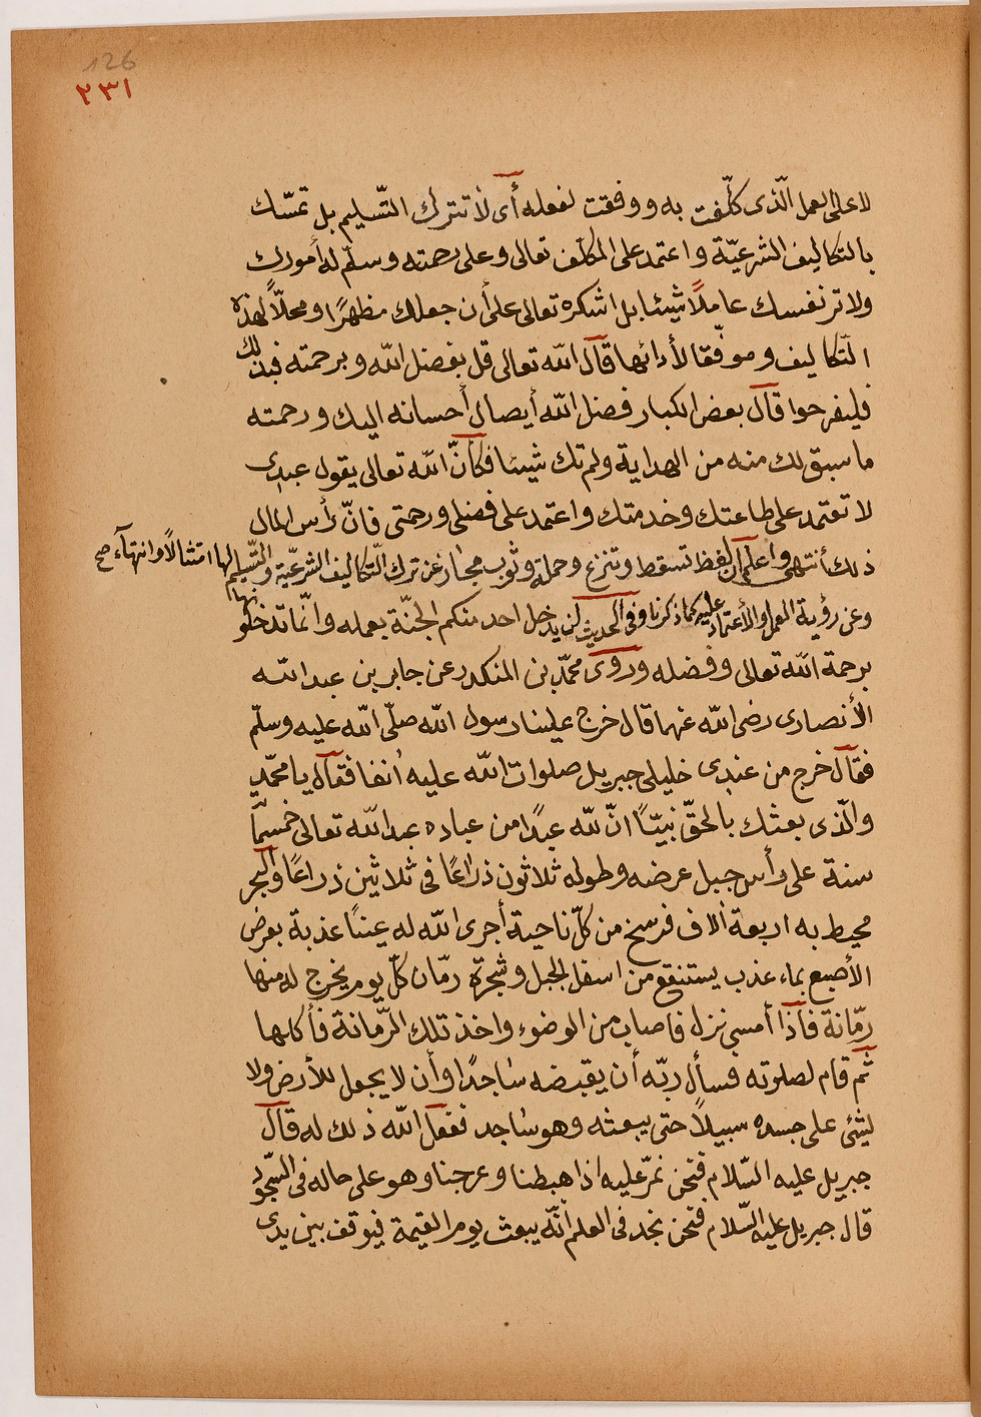 126
٢٣١
لا على العمل الّذى كلّفت به ووفقت لفعله أى لا تترك التّسليم بل تمسّك
بالتكاليف الشرعيّة واعتمد على المكلّف تعالى وعلى رحمته وسلّم له أمورك
ولا تر نفسك عاملًا شيئا بل اشكره تعالى على أن جعلك مظهرًا ومحلّاً لهذه
التّكاليف وموفّقا لأدائها قال الله تعالى قل بفضل الله وبرحمته فبذلك
فليفرحوا قال بعض الكبار فضل الله أيصال أحسانه اليك ورحمته
ما سبق لك منه من الهداية ولم تك شيئا فكأنّ الله تعالى يقول عبدى
لا تعتمد على طاعتك وخدمتك واعتمد على فضلى ورحمتى فانّ رأس المال
ذلك أنتهى واعلم أن لفظ تسقط وتنزع وحملة وثوب مجاز عن ترك التّكاليف الشرعيّة والتّسليم لها امتثالًا وانتهآء صح
بها
وعن رؤية العمل والأعتماد عليه كما ذكرنا وفى الحديث لن يدخل احد منكم الجنّة بعمله وانّما تدخلو
برحمة الله تعالى وفضله وروى محمّد بن المنكدر عن جابر بن عبد الله
الأنصارى رضى الله عنهما قال خرج علينا رسول الله صلّى الله عليه وسلّم
فقال خرج من عندى خليلى جبريل صلوات الله عليه أنفا فقال يا محمّد
والّذى بعثك بالحقّ نبيّاً انّ لله عبدًا من عباده عبد الله تعالى خمسمأ
سنة على رأس جبل عرضه وطوله ثلاثون ذراعًا فى ثلاثين ذراعًا والبحر
محيط به اربعة ألاف فرسخ من كلّ ناحية أجرى الله له عينًا عذبة بعرض
الأصبع بماء عذب يستنقع من اسفل الجبل وشجرة رمّان كلّ يوم يخرج له منها
رمّانة فأذا أمسى نزل فاصاب من الوضوء واخذ تلك الرّمانة فأكلها
ثم قام لصلوته فسأل ربّه أن يقبضه ساجدًا وأن لا يجعل للأرض ولا
لشئ على جسده سبيلاً حتى يبعثه وهو ساجد ففعل الله ذلك له قال
جبريل عليه السّلام فنحن نمرّ عليه اذا هبطنا وعرجنا وهو على حاله فى السّجود
قال جبريل عليه السّلام فنحن نجد فى العلم أنّه يبعث يوم القيمة فيوقف بين يدى